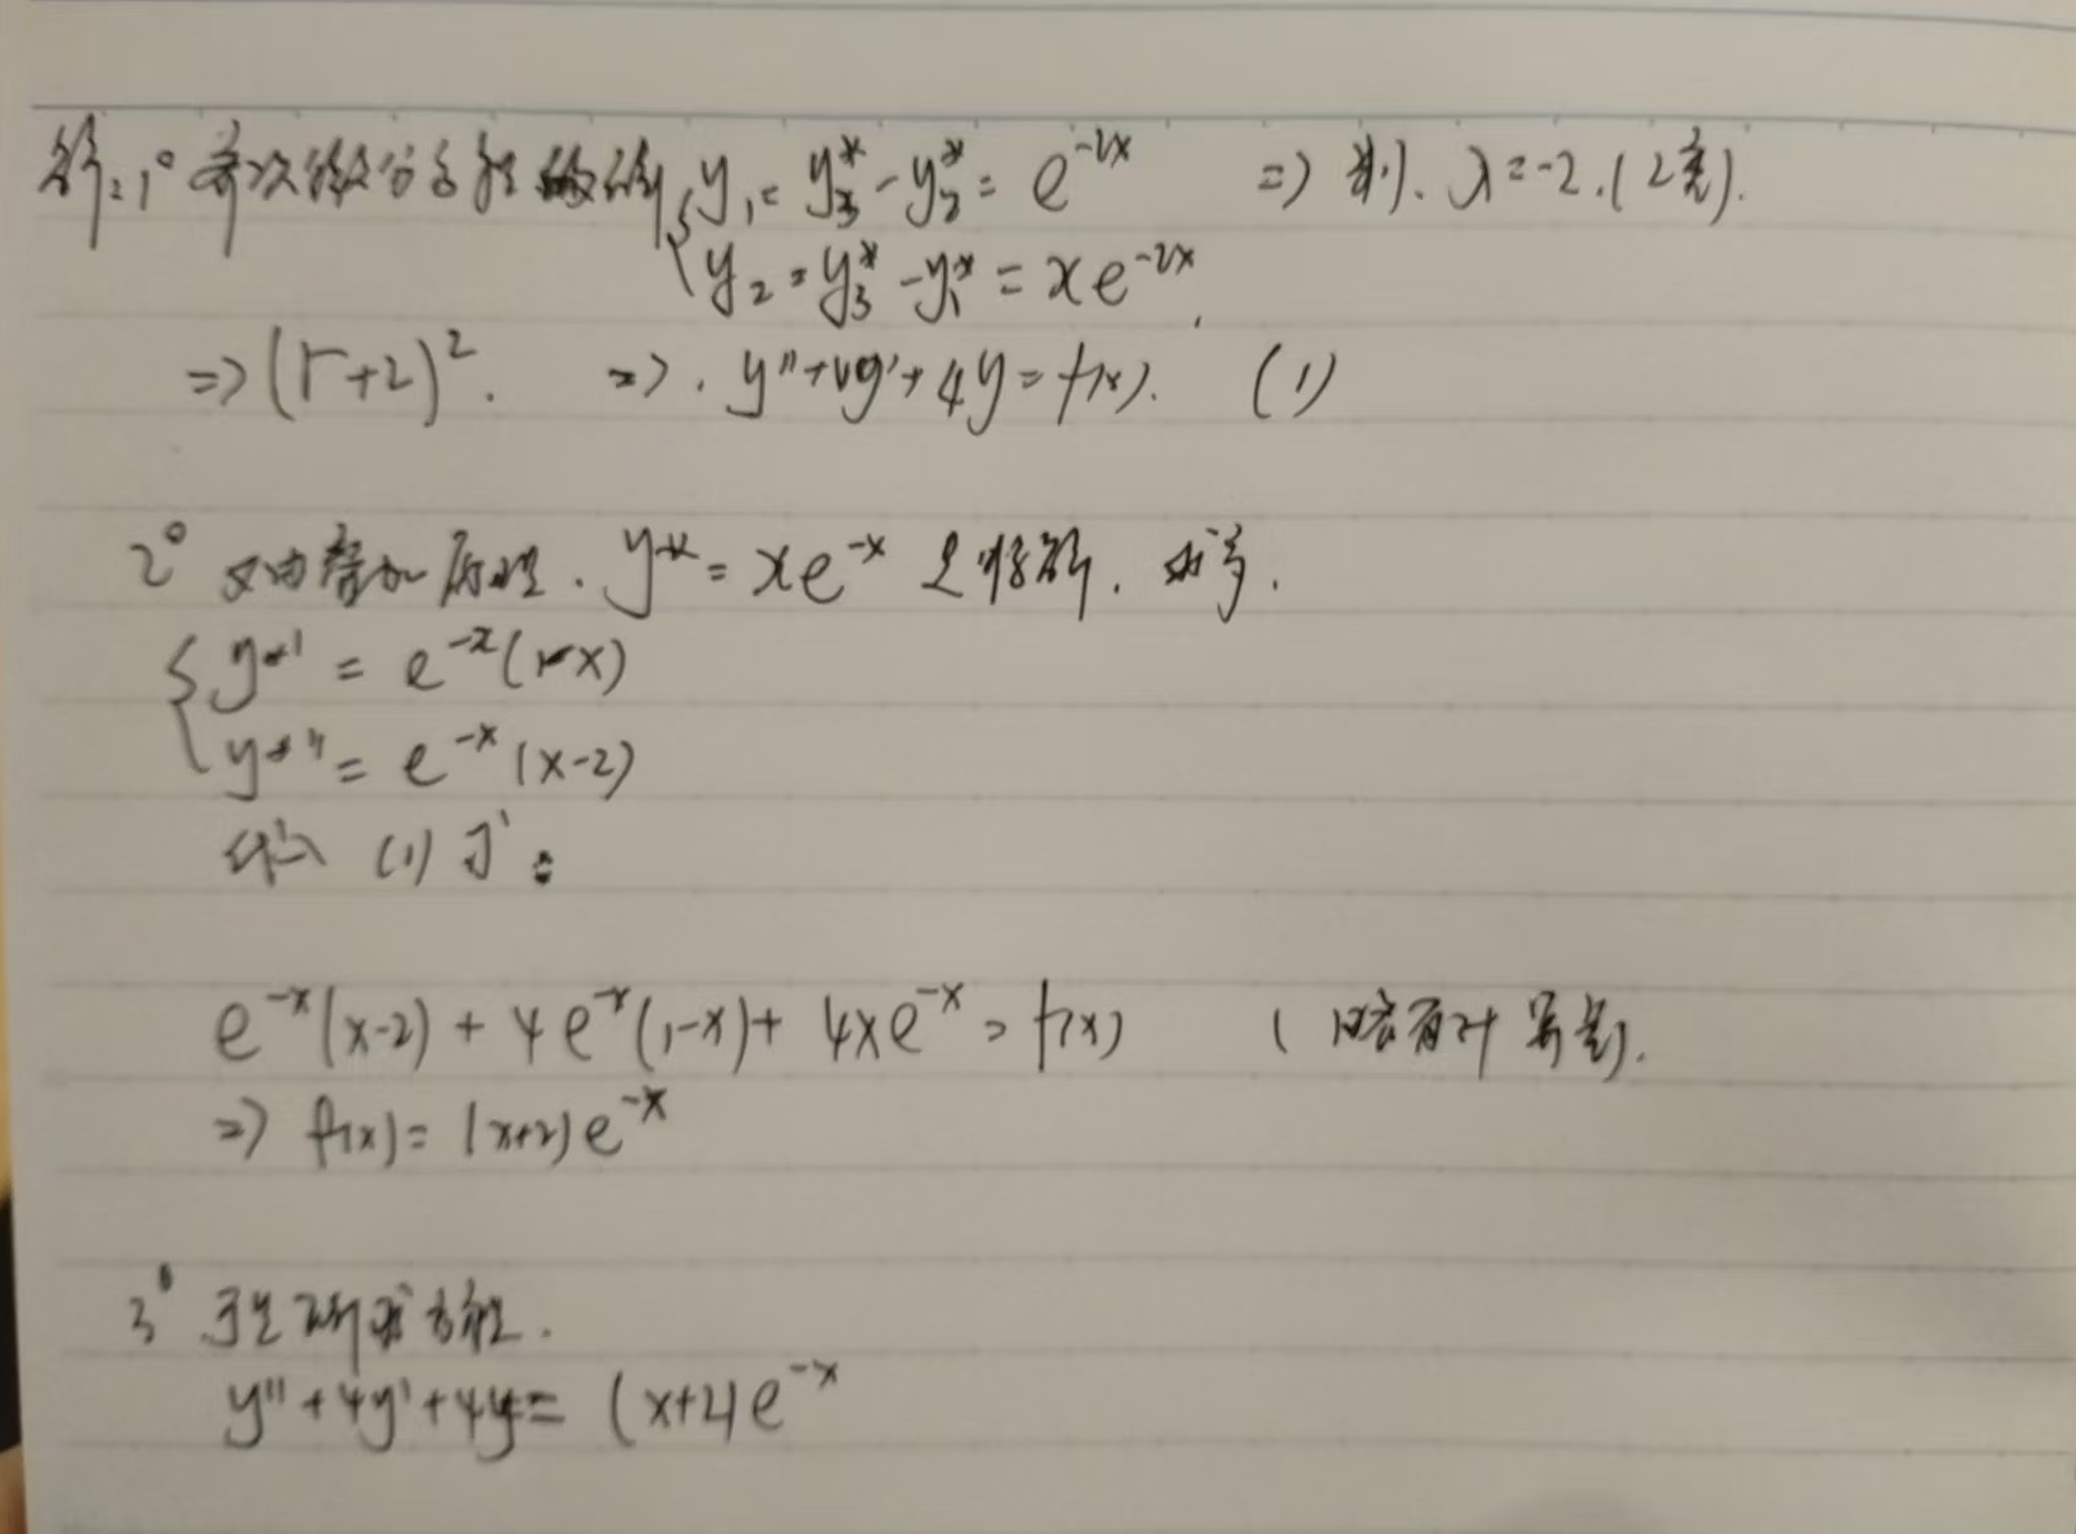 解:1° 齐次微分方程的解 { y₁ = y₃* - y₂* = e^{-2x} => 则. λ = -2. (2重).
y₂ = y₃* - y₁* = xe^{-2x}.
=> (r+2)². => . y''+4y'+4y = f(x). (1)
2° 又由叠加原理. y* = xe^{-x} 是特解. 求导.
{ y*' = e^{-x}(1-x)
y*'' = e^{-x}(x-2)
代入 (1) 式:
e^{-x}(x-2) + 4e^{-x}(1-x) + 4xe^{-x} = f(x) (
=> f(x) = (x+2)e^{-x}
3° 于是所求方程.
y''+4y'+4y = (x+2)e^{-x}